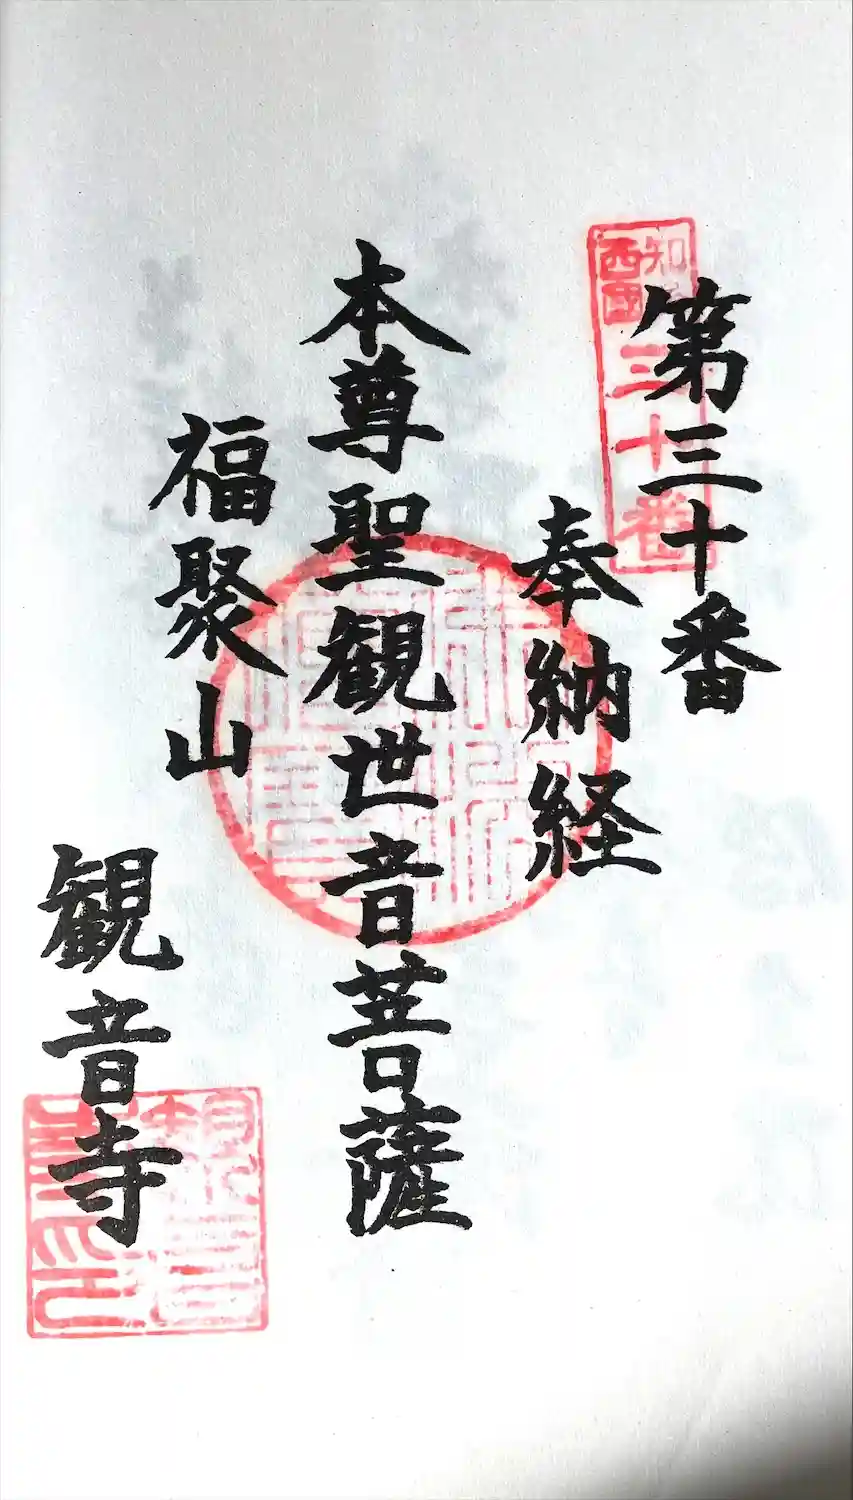 第三十番
知
西国
三十番
奉納経
本尊聖観世音菩薩
福聚山
観音寺